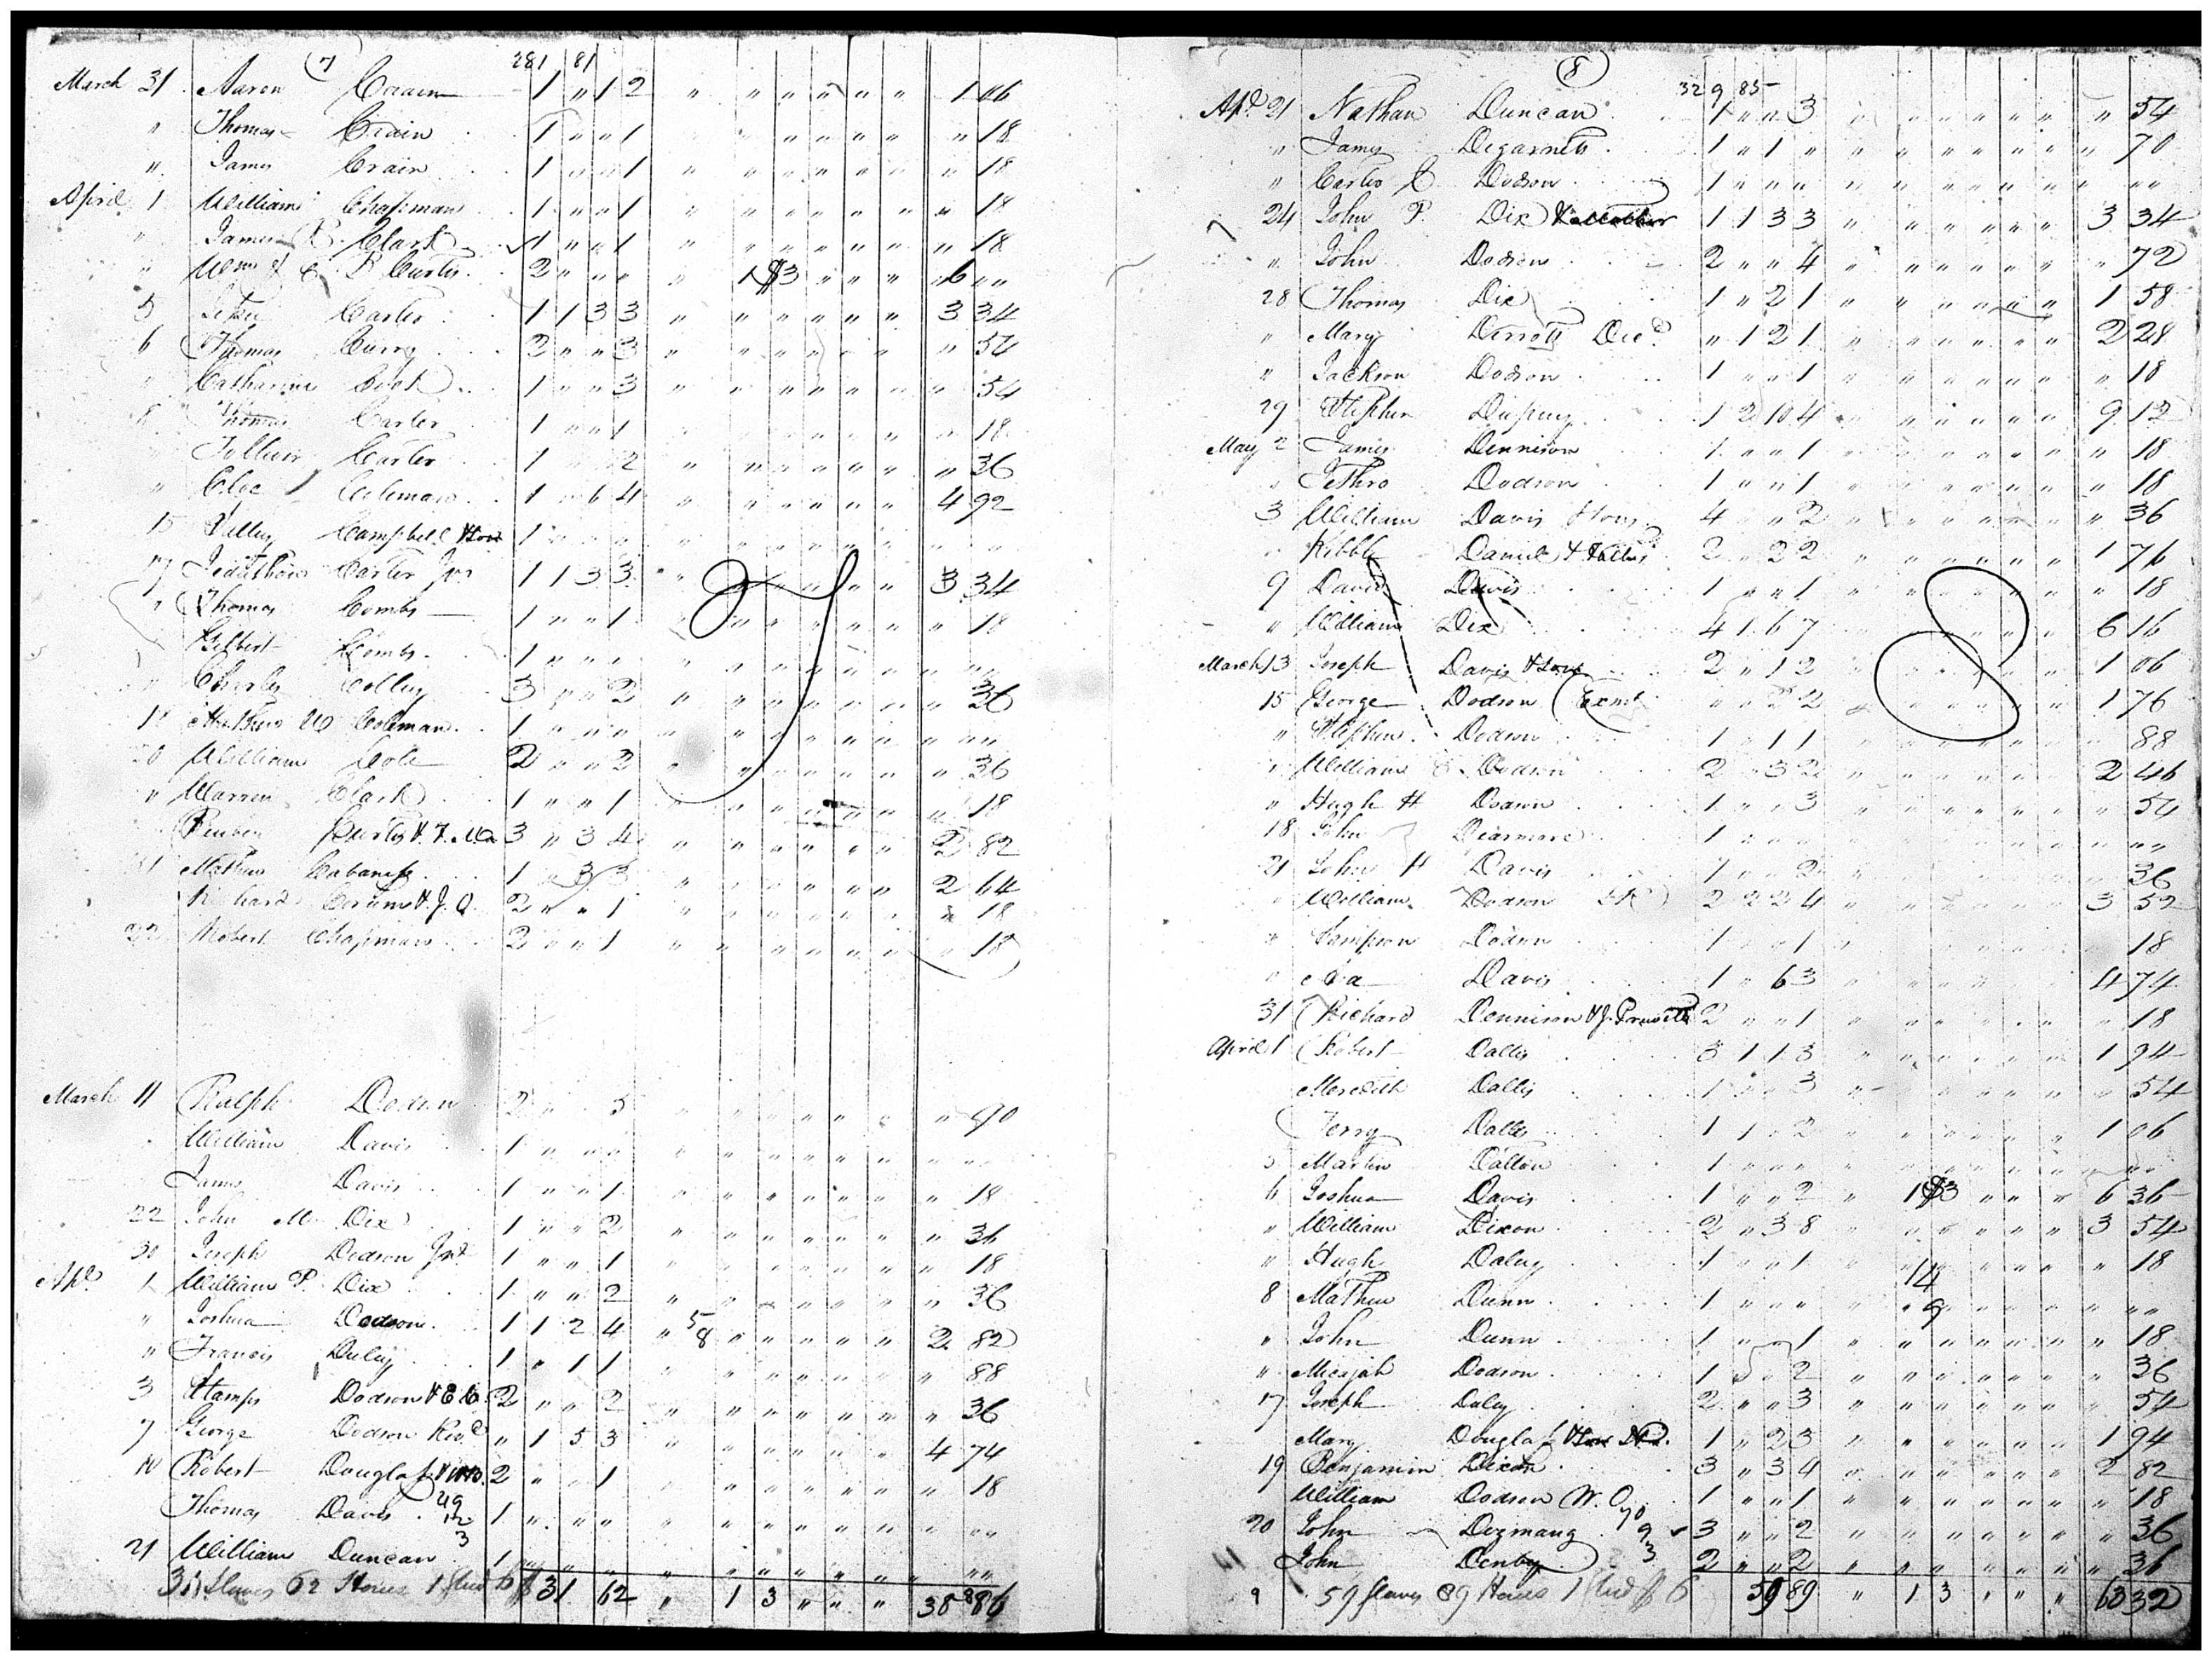 (7) 281 81
March 31 Aaron Crain 1 " 1 2 " " " " " " " 1 06
" Thomas Crain 1 " " 1 " " " " " " " " 18
" James Crain 1 " " 1 " " " " " " " " 18
April 1 William Chapman 1 " " 1 " " " " " " " " 18
" James Clark 1 " " 1 " " " " " " " " 18
" Curtis 2 " " " " 1 $3 " " " " 6 " "
5 Carter 1 1 3 3 " " " " " " " 3 34
6 Thomas Curry 2 " " 3 " " " " " " " " 54
" Catharine Cook 1 " " 3 " " " " " " " " 54
8 Thomas Carter 1 " " 1 " " " " " " " " 18
Carter 1 " " 2 " " " " " " " " 36
" Coleman 1 " 6 4 " " " " " " " 4 92
15 Campbell & Son 1 " " " " " " " " " " " "
17 Jeduthon Carter Jr 1 1 3 3 " " " " " " " 3 34
" Thomas Combs 1 " " 1 " " " " " " " " 18
Gilbert Combs 1 " " " " " " " " " " " "
" Charles Colley 3 " " 2 " " " " " " " " 36
Coleman 1 " " " " " " " " " " " "
20 William Cole 2 " " 2 " " " " " " " " 36
" Warren Clark 1 " " 1 " " " " " " " " 18
Reuben Curtis 3 " 3 4 " " " " " " " 2 82
21 Mathew Cabaness 1 " 3 3 " " " " " " " 2 64
Richard & J. Q. 2 " " 1 " " " " " " " " 18
22 Robert Chapman 2 " " 1 " " " " " " " " 18
March 11 Ralph Dodson 2 " " 5 " " " " " " " " 90
William Davis 1 " " " " " " " " " " " "
James Davis 1 " " 1 " " " " " " " " 18
22 John M Dix 1 " " 2 " " " " " " " " 36
30 Joseph Dodson Jnr 1 " " 1 " " " " " " " " 18
Apl 1 William P. Dix 1 " " 2 " " " " " " " " 36
" Joshua Dodson 1 1 2 4 " 5 8 " " " " " 2 82
" Francis Duley 1 " 1 1 " " " " " " " " 88
3 Stamps Dodson 2 " " 2 " " " " " " " " 36
7 George Dodson " 1 5 3 " " " " " " " 4 74
10 Robert Douglass 2 " " 1 " " " " " " " " 18
Thomas Davis 49 12 3 1 " " " " " " " " " " " "
21 William Duncan 1 " " " " " " " " " " " "
31 Slaves 62 Horses 1 Stud $ 31 62 " 1 3 " " " 38 86
(8) 329 85
Apl 21 Nathan Duncan 1 " " 3 " " " " " " " " 54
" James Degarnett 1 " 1 " " " " " " " " " 70
" Dodson 1 " " " " " " " " " " " "
24 John P. Dix 1 1 3 3 " " " " " " " 3 34
" John Dodson 2 " " 4 " " " " " " " " 72
28 Thomas Dix 1 " 2 1 " " " " " " " 1 58
" Mary " 1 2 1 " " " " " " " 2 28
" Jackson Dodson 1 " " 1 " " " " " " " " 18
29 Stephen Dupuy 1 2 10 4 " " " " " " " 9 12
May 2 James Dennison 1 " " 1 " " " " " " " " 18
" Jethro Dodson 1 " " 1 " " " " " " " " 18
3 William Davis 4 " " 2 " " " " " " " " 36
Daniel 2 " 2 2 " " " " " " " 1 76
9 David Davis 1 " " 1 " " " " " " " " 18
" William Dix 4 1 6 7 " " " " " " " 6 16
March 13 Joseph Davis & Son 2 " 1 2 " " " " " " " 1 06
15 George Dodson " " 2 2 " " " " " " " 1 76
" Stephen Dodson 1 " 1 1 " " " " " " " " 88
" William Dodson 2 " 3 2 " " " " " " " 2 46
" Hugh H Dodson 1 " " 3 " " " " " " " " 54
18 John 1 " " " " " " " " " " " "
21 John H Davis 1 " " 2 " " " " " " " " 36
William Dodson 2 2 2 4 " " " " " " " 3 52
" Sampson Dodson 1 " " 1 " " " " " " " " 18
" Asa Davis 1 " 6 3 " " " " " " " 4 74
31 Richard Dennison & J. Pruitt 2 " " 1 " " " " " " " " 18
April 1 Robert Dallis 3 1 1 3 " " " " " " " 1 94
Meredith Dallis 1 " " 3 " " " " " " " " 54
Terry Dallis 1 1 " 2 " " " " " " " 1 06
5 Martin Dalton 1 " " " " " " " " " " " "
6 Joshua Davis 1 " " 2 " 1 $3 " " " 6 36
" William Dixon 2 " 3 8 " " " " " " " 3 54
" Hugh Daley 1 " " 1 " " " " " " " " 18
8 Mathew Dunn 1 " " " " 14 9 " " " " " " "
" John Dunn 1 " " 1 " " " " " " " " 18
" Micajah Dodson 1 " " 2 " " " " " " " " 36
17 Joseph Daley 2 " " 3 " " " " " " " " 54
Mary Douglass 1 " 2 3 " " " " " " " 1 94
19 Benjamin Dixon 3 " 3 4 " " " " " " " 2 82
William Dodson W. O. 1 " " 1 " " " " " " " " 18
20 John Dezmang 70 9 3 3 " " 2 " " " " " " " " 36
John Denby 2 " " 2 " " " " " " " " 36
9 59 Slaves 89 Horses 1 Stud $ 6 59 89 " 1 3 " " " 63 32